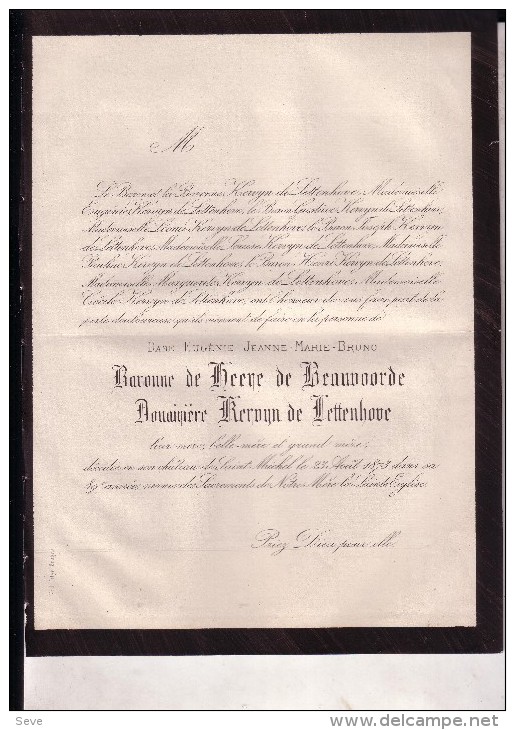 M
Le Baron et la Baronne Kervyn de Lettenhove, Mademoiselle
Eugénie Kervyn de Lettenhove, le Baron Gustave Kervyn de Lettenhove,
Mademoiselle Léonie Kervyn de Lettenhove, le Baron Joseph Kervyn
de Lettenhove, Mademoiselle Louise Kervyn de Lettenhove, Mademoiselle
Pauline Kervyn de Lettenhove, le Baron Henri Kervyn de Lettenhove,
Mademoiselle Marguerite Kervyn de Lettenhove, Mademoiselle
Cécile Kervyn de Lettenhove, ont l'honneur de vous faire part de la
perte douloureuse qu'ils viennent de faire en la personne de
DAME EUGÉNIE JEANNE-MARIE-BRUNO
Baronne de Heere de Beauvoorde
Douairière Kervyn de Lettenhove
leur mère, belle-mère et grand'mère,
décédée en son château de Saint Michel le 23 Août 1873 dans sa
année, munie des Sacrements de Notre Mère la Sainte Eglise.
Priez Dieu pour elle.
Seve
delcampe.net